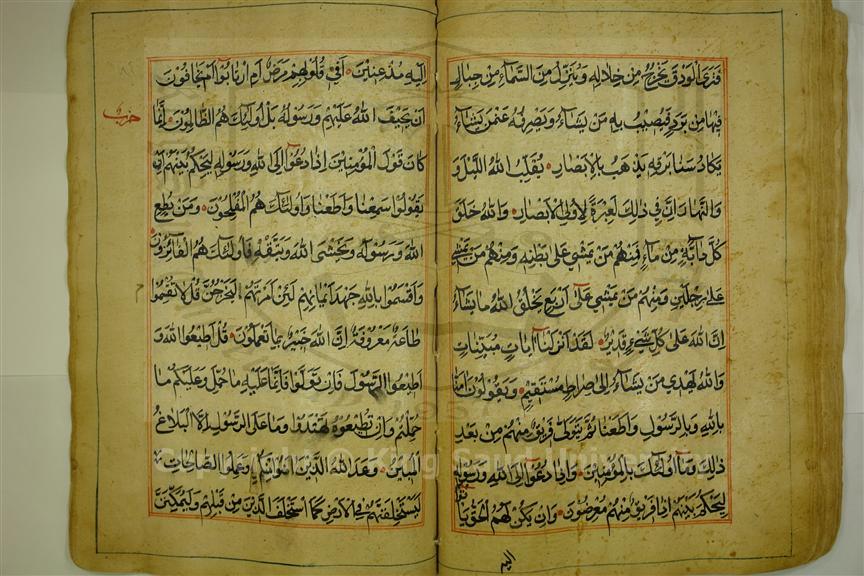 فَتَرَى الْوَدْقَ يَخْرُجُ مِنْ خِلَالِهِ وَيُنَزِّلُ مِنَ السَّمَآءِ مِنْ جِبَالٍ
فِيهَا مِنْ بَرَدٍ فَيُصِيبُ بِهِ مَنْ يَشَآءُ وَيَصْرِفُهُ عَنْ مَنْ يَشَآءُ
يَكَادُ سَنَا بَرْقِهِ يَذْهَبُ بِالْاَبْصَارِ يُقَلِّبُ اللهُ اللَّيْلَ وَ
وَالنَّهَارَ اِنَّ فِي ذٰلِكَ لَعِبْرَةً لِاُولِي الْاَبْصَارِ وَاللهُ خَلَقَ
كُلَّ دَآبَّةٍ مِنْ مَآءٍ فَمِنْهُمْ مَنْ يَمْشِي عَلَى بَطْنِهِ وَمِنْهُمْ مَنْ يَمْشِي
عَلَى رِجْلَيْنِ وَمِنْهُمْ مَنْ يَمْشِي عَلَى اَرْبَعٍ يَخْلُقُ اللهُ مَا يَشَآءُ
اِنَّ اللهَ عَلَى كُلِّ شَيْءٍ قَدِيرٌ لَقَدْ اَنْزَلْنَا اٰيَاتٍ مُبَيِّنَاتٍ
وَاللهُ يَهْدِي مَنْ يَشَآءُ اِلَى صِرَاطٍ مُسْتَقِيمٍ وَيَقُولُونَ اٰمَنَّا
بِاللهِ وَبِالرَّسُولِ وَاَطَعْنَا ثُمَّ يَتَوَلَّى فَرِيقٌ مِنْهُمْ مِنْ بَعْدِ
ذٰلِكَ وَمَآ اُولٰئِكَ بِالْمُؤْمِنِينَ وَاِذَا دُعُوآ اِلَى اللهِ وَرَسُولِهِ
لِيَحْكُمَ بَيْنَهُمْ اِذَا فَرِيقٌ مِنْهُمْ مُعْرِضُونَ وَاِنْ يَكُنْ لَهُمُ الْحَقُّ يَأْتُوا
اليه
اِلَيْهِ مُذْعِنِينَ اَفِي قُلُوبِهِمْ مَرَضٌ اَمِ ارْتَابُوآ اَمْ يَخَافُونَ
اَنْ يَحِيفَ اللهُ عَلَيْهِمْ وَرَسُولُهُ بَلْ اُولٰئِكَ هُمُ الظَّالِمُونَ اِنَّمَا
حزب
كَانَ قَوْلَ الْمُؤْمِنِينَ اِذَا دُعُوآ اِلَى اللهِ وَرَسُولِهِ لِيَحْكُمَ بَيْنَهُمْ اَنْ
يَقُولُوا سَمِعْنَا وَاَطَعْنَا وَاُولٰئِكَ هُمُ الْمُفْلِحُونَ وَمَنْ يُطِعِ
اللهَ وَرَسُولَهُ وَيَخْشَى اللهَ وَيَتَّقْهِ فَاُولٰئِكَ هُمُ الْفَآئِزُونَ
وَاَقْسَمُوا بِاللهِ جَهْدَ اَيْمَانِهِمْ لَئِنْ اَمَرْتَهُمْ لَيَخْرُجُنَّ قُلْ لَا تُقْسِمُوا
طَاعَةٌ مَعْرُوفَةٌ اِنَّ اللهَ خَبِيرٌ بِمَا تَعْمَلُونَ قُلْ اَطِيعُوا اللهَ وَ
اَطِيعُوا الرَّسُولَ فَاِنْ تَوَلَّوْا فَاِنَّمَا عَلَيْهِ مَا حُمِّلَ وَعَلَيْكُمْ مَا
حُمِّلْتُمْ وَاِنْ تُطِيعُوهُ تَهْتَدُوا وَمَا عَلَى الرَّسُولِ اِلَّا الْبَلَاغُ
الْمُبِينُ وَعَدَ اللهُ الَّذِينَ اٰمَنُوا مِنْكُمْ وَعَمِلُوا الصَّالِحَاتِ
لَيَسْتَخْلِفَنَّهُمْ فِي الْاَرْضِ كَمَا اسْتَخْلَفَ الَّذِينَ مِنْ قَبْلِهِمْ وَلَيُمَكِّنَنَّ